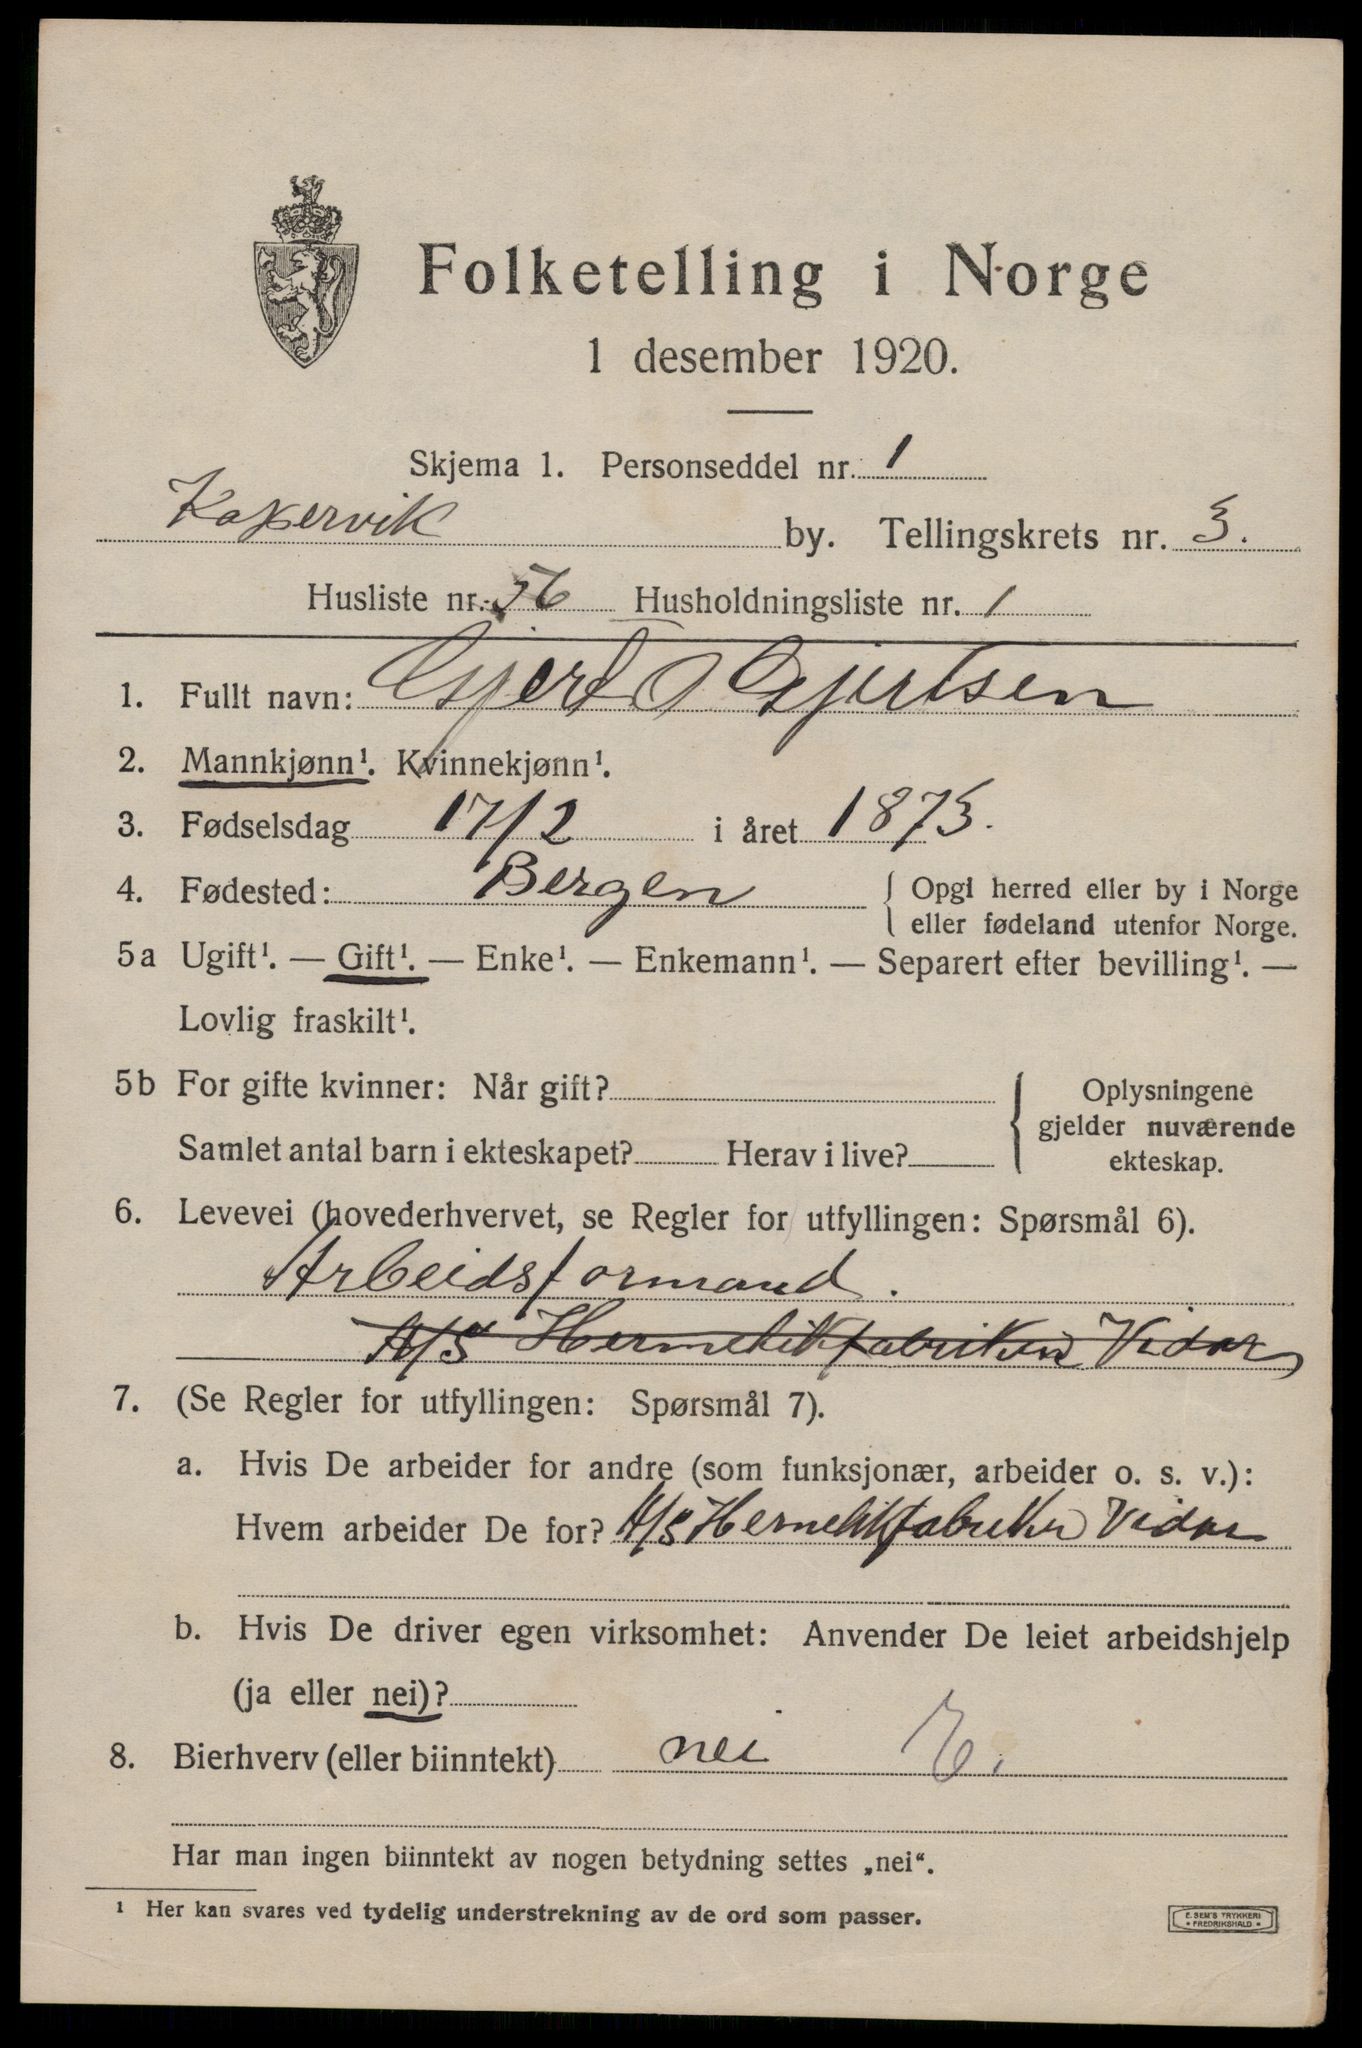 Folketelling i Norge
1 desember 1920.
Skjema 1. Personseddel nr. 1
Kopervik by. Tellingskrets nr. 3.
Husliste nr. 56 Husholdningsliste nr. 1
1. Fullt navn: Gjert O Gjertsen
2. Mannkjønn¹. Kvinnekjønn¹.
3. Fødselsdag 17/2 i året 1873.
4. Fødested: Bergen { Opgi herred eller by i Norge
eller fødeland utenfor Norge.
5a Ugift¹. — Gift¹. — Enke¹. — Enkemann¹. — Separert efter bevilling¹. —
Lovlig fraskilt¹.
5b For gifte kvinner: Når gift? { Oplysningene
gjelder nuværende
Samlet antal barn i ekteskapet? Herav i live? ekteskap.
6. Levevei (hovederhvervet, se Regler for utfyllingen: Spørsmål 6).
Arbeidsformand.
A/S Hermetikfabriken Vidar
7. (Se Regler for utfyllingen: Spørsmål 7).
a. Hvis De arbeider for andre (som funksjonær, arbeider o. s. v.):
Hvem arbeider De for? A/S Hermetikfabriken Vidar
b. Hvis De driver egen virksomhet: Anvender De leiet arbeidshjelp
(ja eller nei)?
8. Bierhverv (eller biinntekt) nei E.
Har man ingen biinntekt av nogen betydning settes „nei“.
¹ Her kan svares ved tydelig understrekning av de ord som passer.
E. SEM'S TRYKKERI
• FREDRIKSHALD •